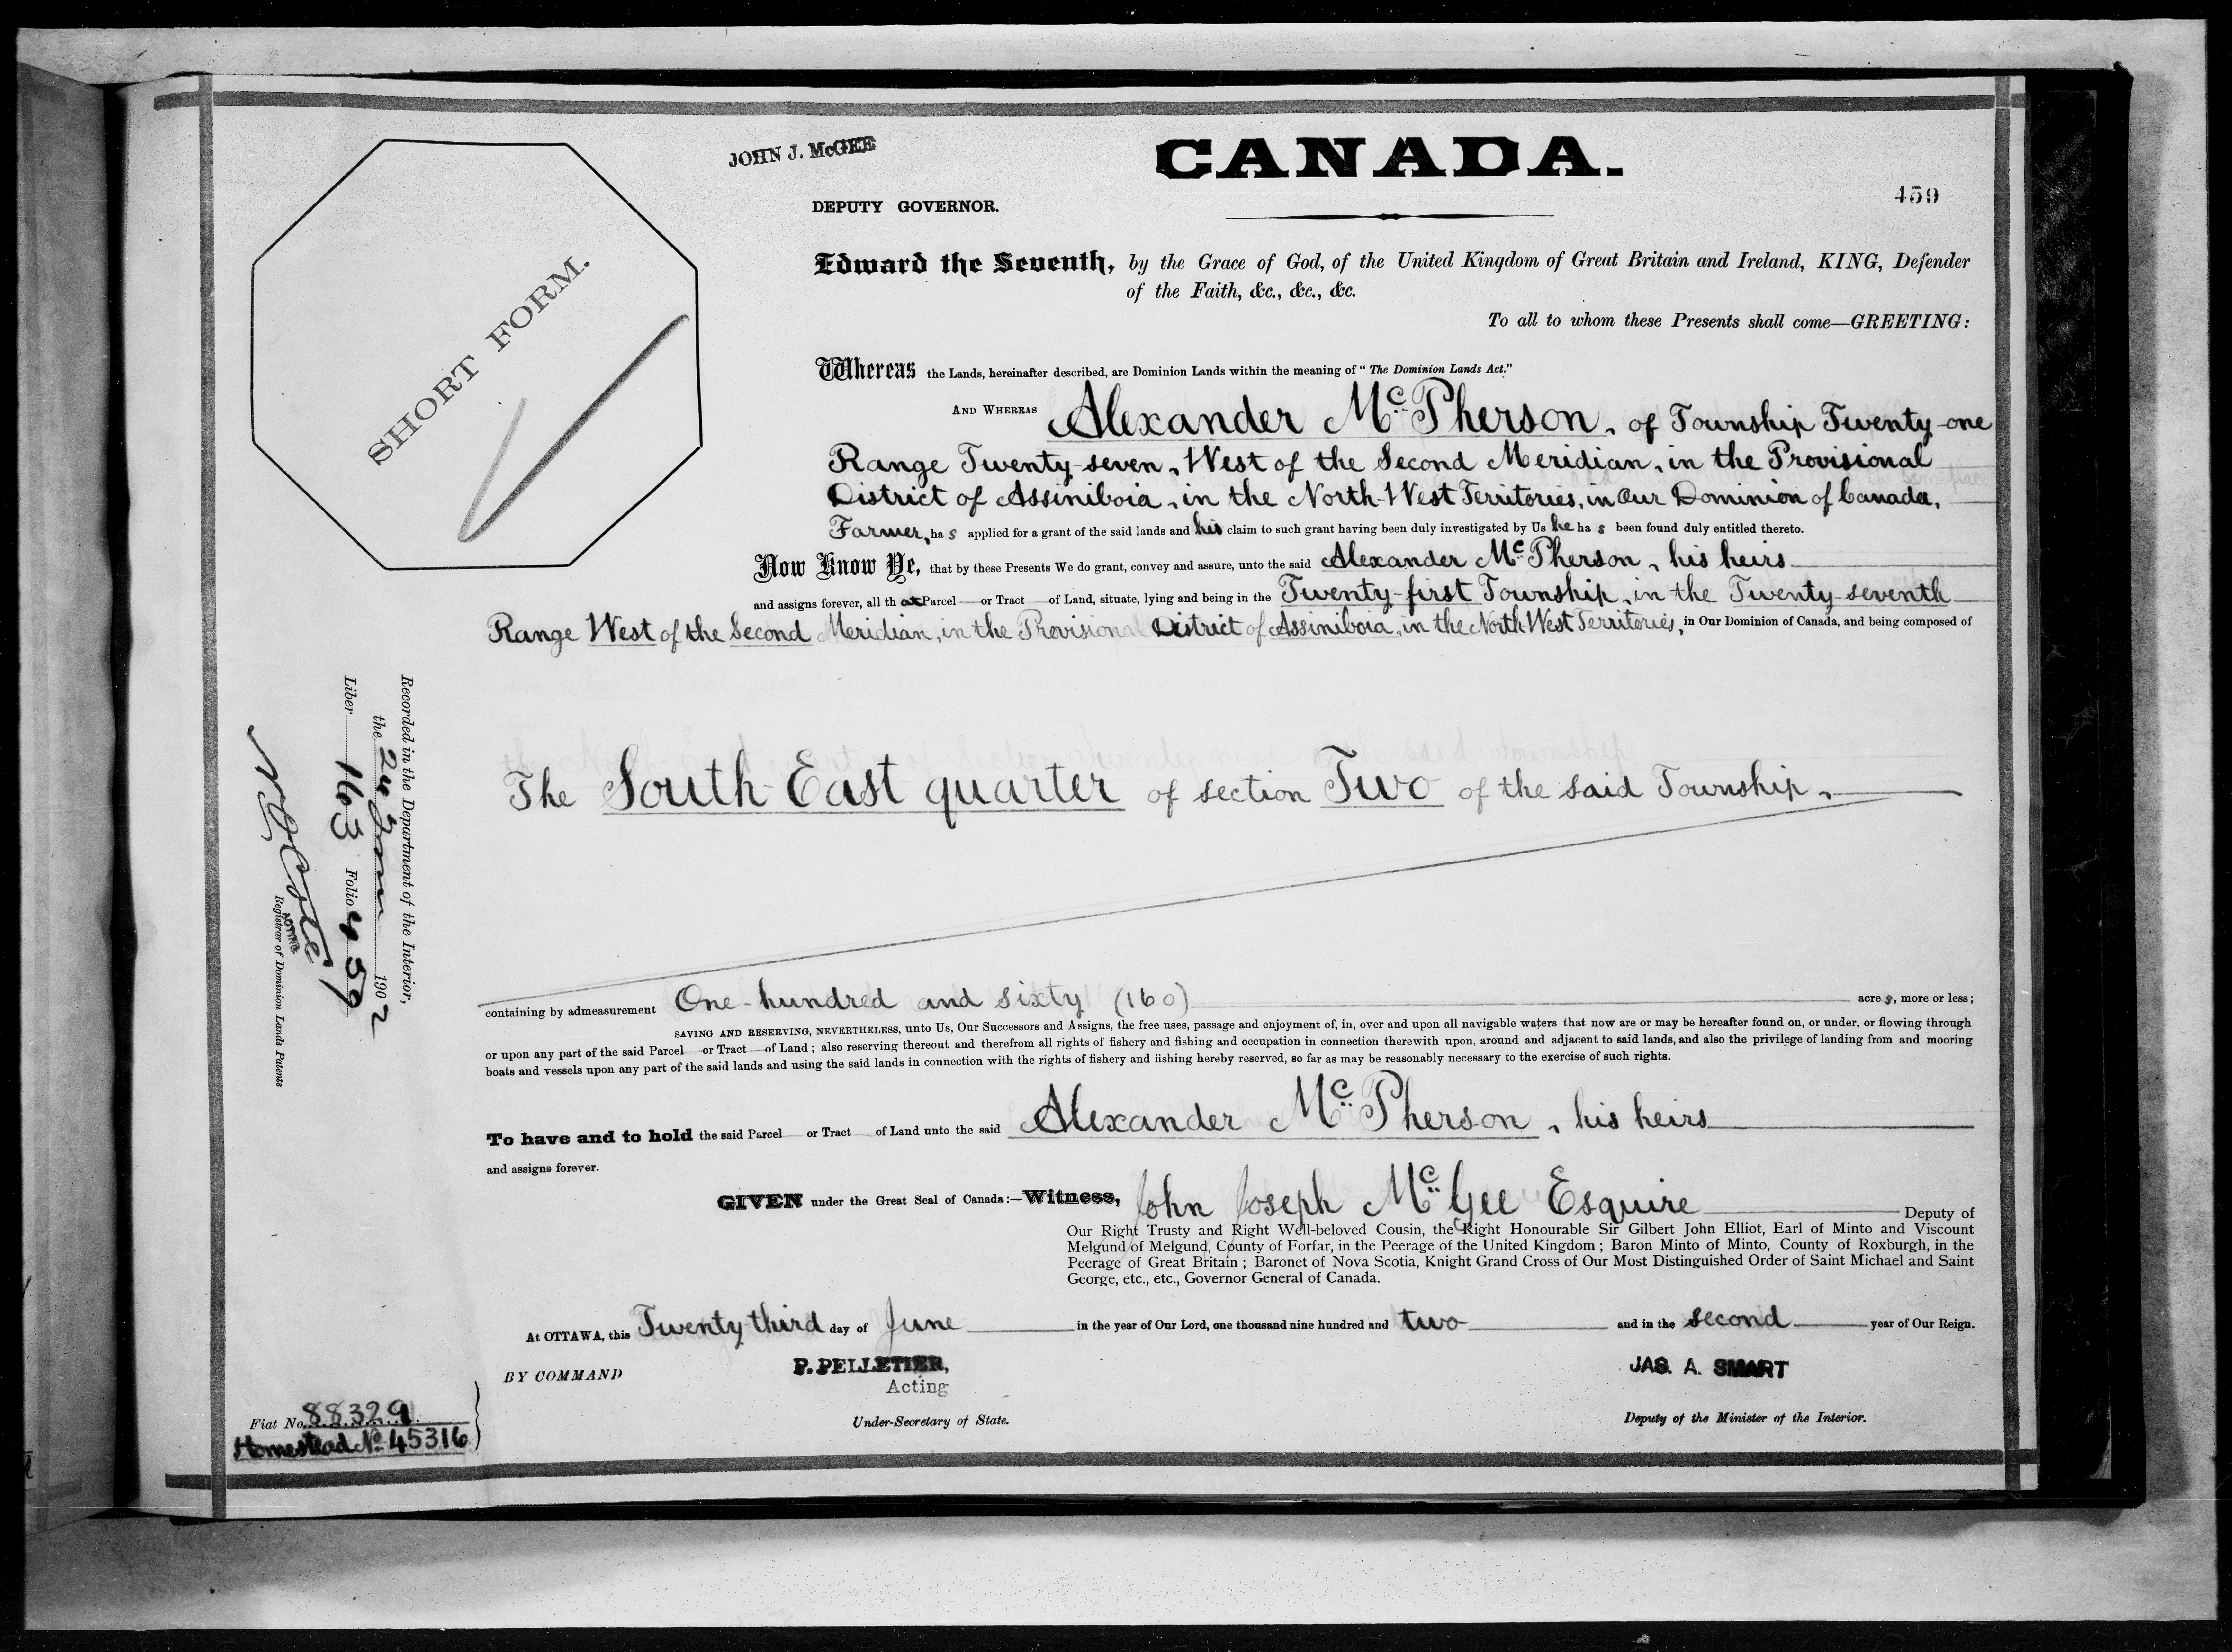 JOHN J. McGEE
CANADA.
DEPUTY GOVERNOR.
459
Edward the Seventh, by the Grace of God, of the United Kingdom of Great Britain and Ireland, KING, Defender
of the Faith, &c., &c., &c.
To all to whom these Presents shall come—GREETING:
SHORT FORM.
Whereas the Lands, hereinafter described, are Dominion Lands within the meaning of "The Dominion Lands Act."
AND WHEREAS Alexander McPherson, of Township Twenty-one
Range Twenty-seven, West of the Second Meridian, in the Provisional
District of Assiniboia, in the North-West Territories, in Our Dominion of Canada,
Farmer, has applied for a grant of the said lands and his claim to such grant having been duly investigated by Us he has been found duly entitled thereto.
Now Know Ye, that by these Presents We do grant, convey and assure, unto the said Alexander McPherson, his heirs
and assigns forever, all that Parcel or Tract of Land, situate, lying and being in the Twenty-first Township, in the Twenty-seventh
Range West of the Second Meridian, in the Provisional District of Assiniboia, in the North West Territories, in Our Dominion of Canada, and being composed of
The South-East quarter of section Two of the said Township,
containing by admeasurement One-hundred and sixty (160) acres, more or less;
SAVING AND RESERVING, NEVERTHELESS, unto Us, Our Successors and Assigns, the free uses, passage and enjoyment of, in, over and upon all navigable waters that now are or may be hereafter found on, or under, or flowing through
or upon any part of the said Parcel or Tract of Land; also reserving thereout and therefrom all rights of fishery and fishing and occupation in connection therewith upon, around and adjacent to said lands, and also the privilege of landing from and mooring
boats and vessels upon any part of the said lands and using the said lands in connection with the rights of fishery and fishing hereby reserved, so far as may be reasonably necessary to the exercise of such rights.
To have and to hold the said Parcel or Tract of Land unto the said Alexander McPherson, his heirs
and assigns forever.
GIVEN under the Great Seal of Canada:—Witness, John Joseph McGee Esquire Deputy of
Our Right Trusty and Right Well-beloved Cousin, the Right Honourable Sir Gilbert John Elliot, Earl of Minto and Viscount
Melgund of Melgund, County of Forfar, in the Peerage of the United Kingdom; Baron Minto of Minto, County of Roxburgh, in the
Peerage of Great Britain; Baronet of Nova Scotia, Knight Grand Cross of Our Most Distinguished Order of Saint Michael and Saint
George, etc., etc., Governor General of Canada.
At OTTAWA, this Twenty third day of June in the year of Our Lord, one thousand nine hundred and two and in the second year of Our Reign.
BY COMMAND
P. PELLETIER,
Acting
Under-Secretary of State.
JAS. A. SMART
Deputy of the Minister of the Interior.
Recorded in the Department of the Interior,
the 24 June 1902
Liber 163 Folio 459
N O Coté
ACTING
Registrar of Dominion Lands Patents
Fiat No. 88329
Homestead No. 45316